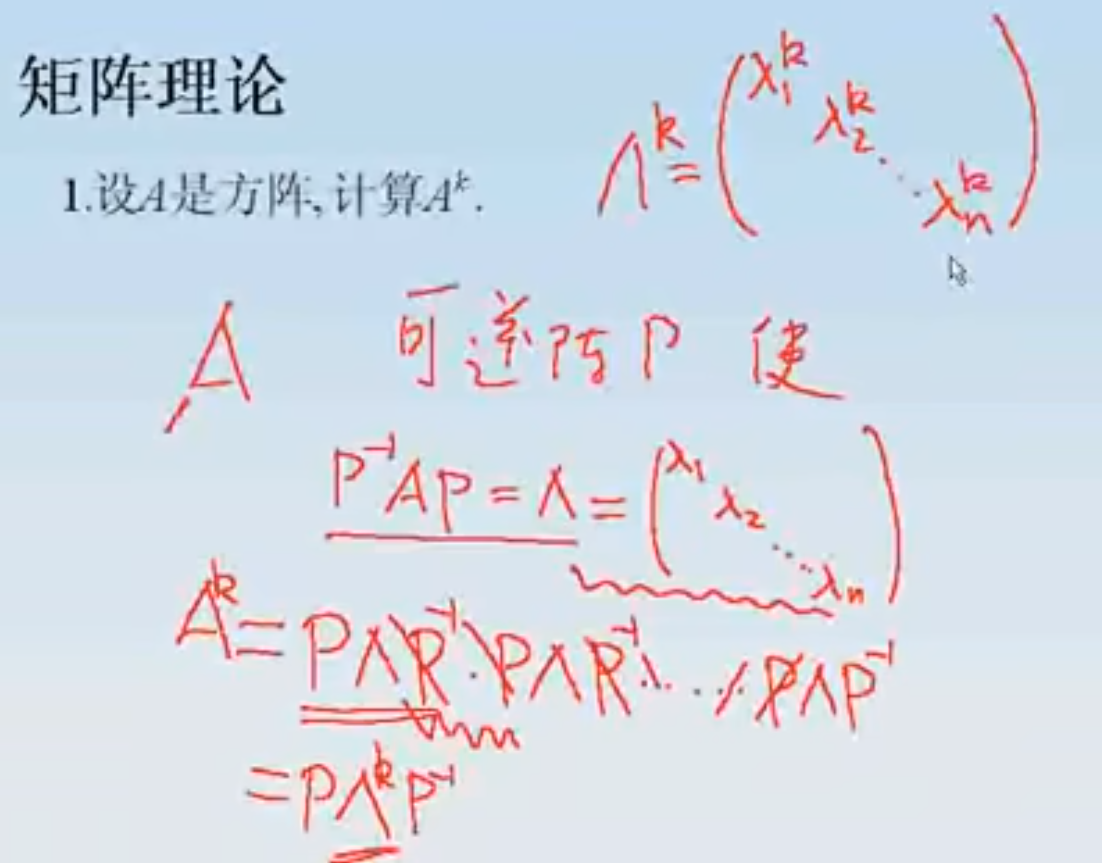 矩阵理论
1.设A是方阵,计算Aᵏ.
Λᵏ = (λ₁ᵏ λ₂ᵏ ⋱ λₙᵏ)
A 可逆阵P 使
P⁻¹AP = Λ = (λ₁ λ₂ ⋱ λₙ)
Aᵏ = PΛP⁻¹·PΛP⁻¹·…·PΛP⁻¹
= PΛᵏP⁻¹